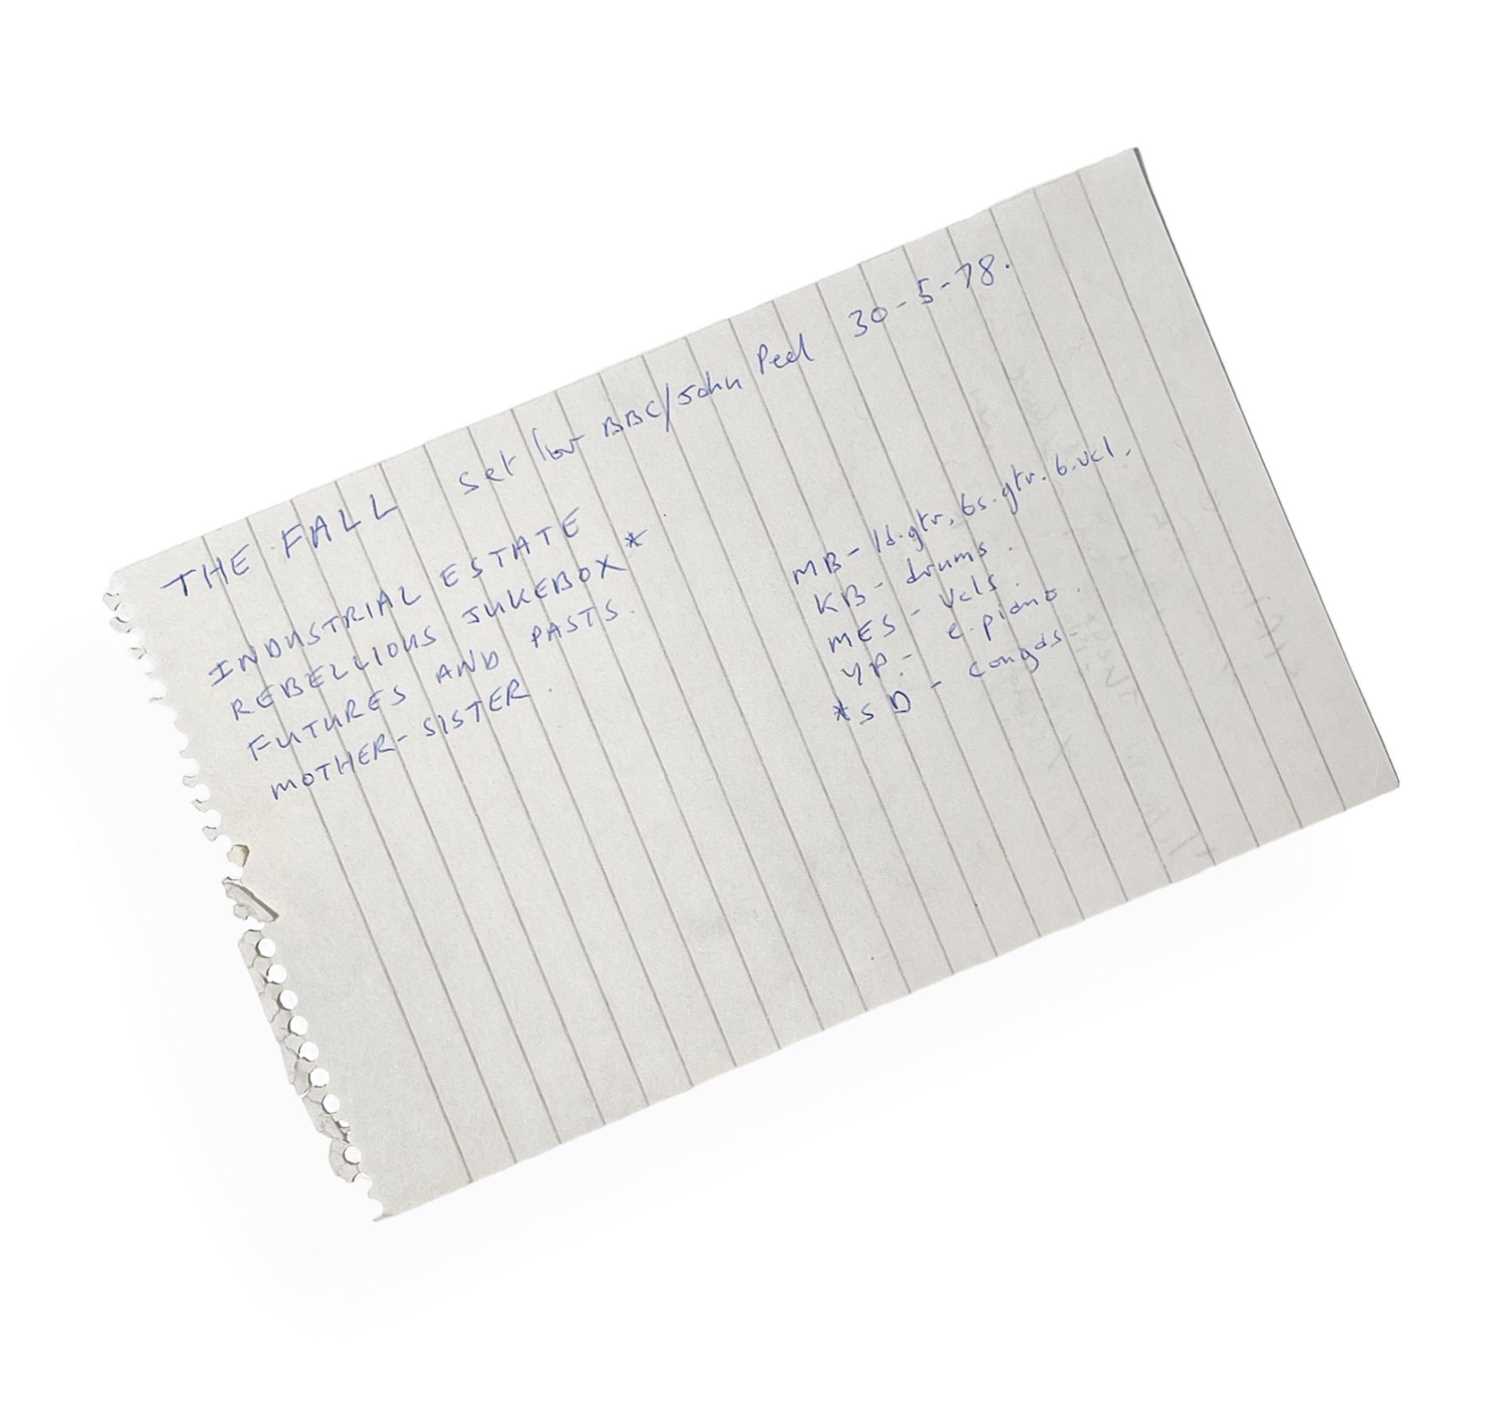 THE FALL set for BBC/John Peel 30-5-78.
INDUSTRIAL ESTATE
REBELLIOUS JUKEBOX*
FUTURES AND PASTS.
MOTHER-SISTER.
MB - ld.gtr, bs.gtr. b.vcl.
KB - drums.
MES - vcls.
YP. - e.piano.
*SD - congas-